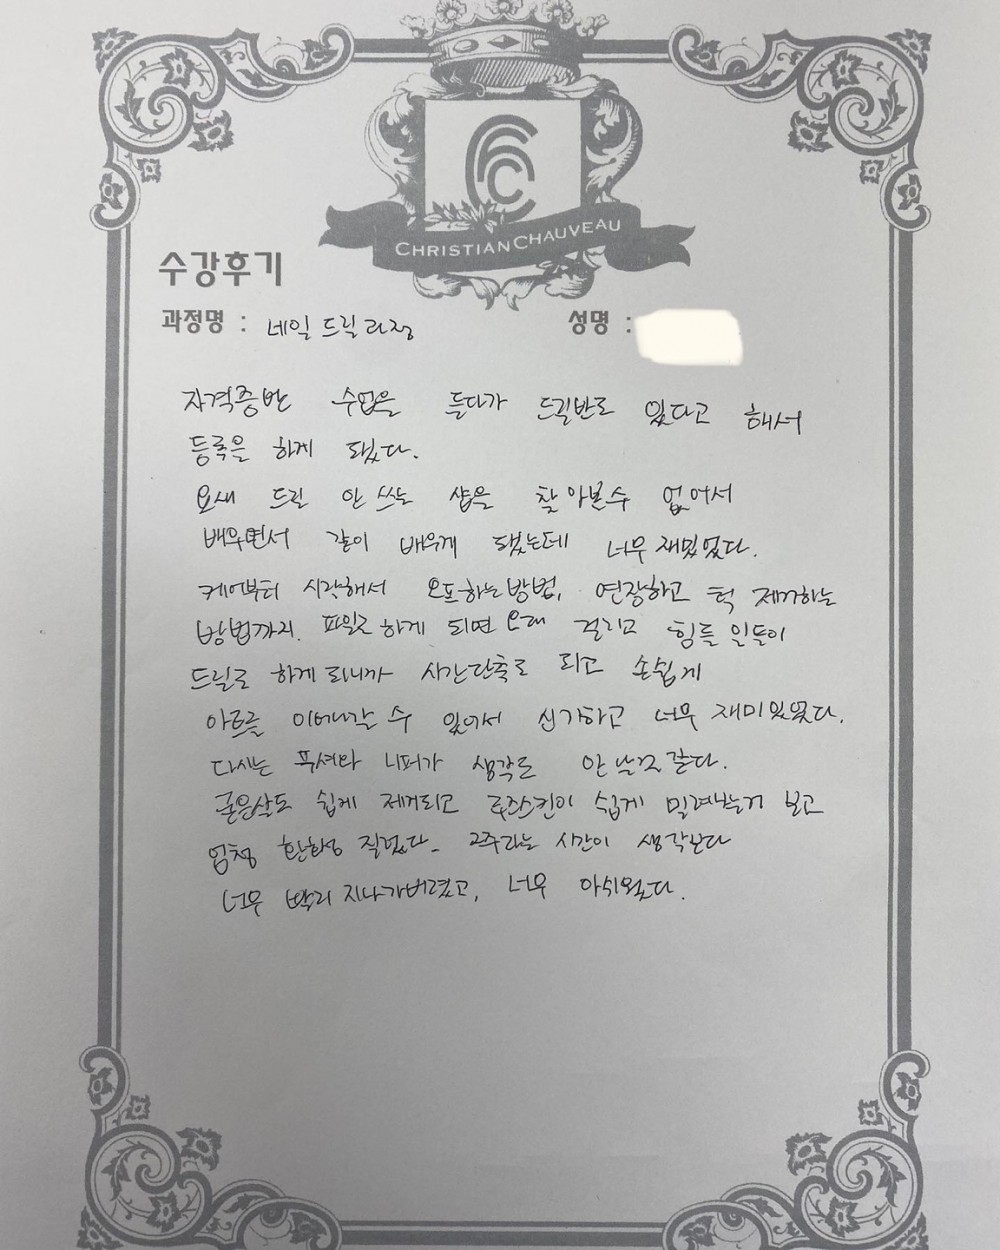 CHRISTIAN CHAUVEAU
수강후기
과정명 : 네일 드릴과정 성명 :
자격증반 수업을 듣다가 드릴반도 있다고 해서
등록을 하게 됐다.
요새 드릴 안 쓰는 샵을 찾아볼수 없어서
배우면서 같이 배우게 됐는데 너무 재밌었다.
케어부터 시작해서 오프하는방법, 연장하고 턱 제거하는
방법까지. 파일로 하게 되면 오래 걸리고 힘들 일들이
드릴로 하게 되니까 시간단축도 되고 손쉽게
아트를 이어나갈 수 있어서 신기하고 너무 재미있었다.
다시는 푸셔와 니퍼가 생각도 안 날것 같다.
굳은살도 쉽게 제거되고 루즈스킨이 쉽게 밀려나는거 보고
엄청 환희성 질렀다. 2주라는 시간이 생각보다
너무 빨리 지나가버렸고, 너무 아쉬웠다.